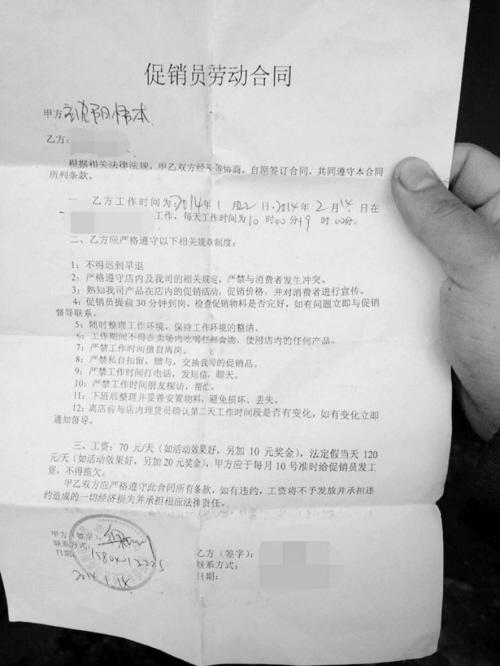 促销员劳动合同
甲方：沈阳伟本
乙方：
根据相关法律法规，甲乙双方经平等协商，自愿签订合同，共同遵守本合同
所列条款。
一、乙方工作时间为2014年1月22日-2014年2月14日在
工作，每天工作时间为10时00分19时00分。
二、乙方应严格遵守以下相关规章制度：
1：不得迟到早退
2：严格遵守店内及我司的相关规定，严禁与消费者发生冲突。
3：熟知我司产品在店内的促销活动，促销价格，并对消费者进行宣传。
4：促销员提前30分钟到岗，检查促销物料是否完好，如有问题立即与促销
督导联系。
5：随时整理工作环境，保持工作环境的整洁。
6：工作期间不得在卖场内吃喝任何食物，使用店内的任何产品。
7：严禁工作时间擅自离岗。
8：严禁私自扣留，赠与，交换我司的促销品。
9：严禁工作时间打电话，发短信，聊天。
10：严禁工作时间朋友探访，帮忙。
11：下班后整理并妥善安置物料，避免损坏、丢失。
12：离店前与店内理货员确认第二天工作时间段是否有变化，如有变化立即
通知督导。
三、工资：70元/天（如活动效果好，另加10元奖金），法定假当天120
元/天（如活动效果好，另加20元奖金），甲方应于每月10号准时给促销员发工
资，不得拖欠。
甲乙双方应严格遵守此合同所有条款，如有违约，工资将不予发放并承担违
约造成的一切经济损失并承担相应法律责任。
甲方（签字）：
联系方式：15804012225
日期：2014.1.14
乙方（签字）：
联系方式：
日期：